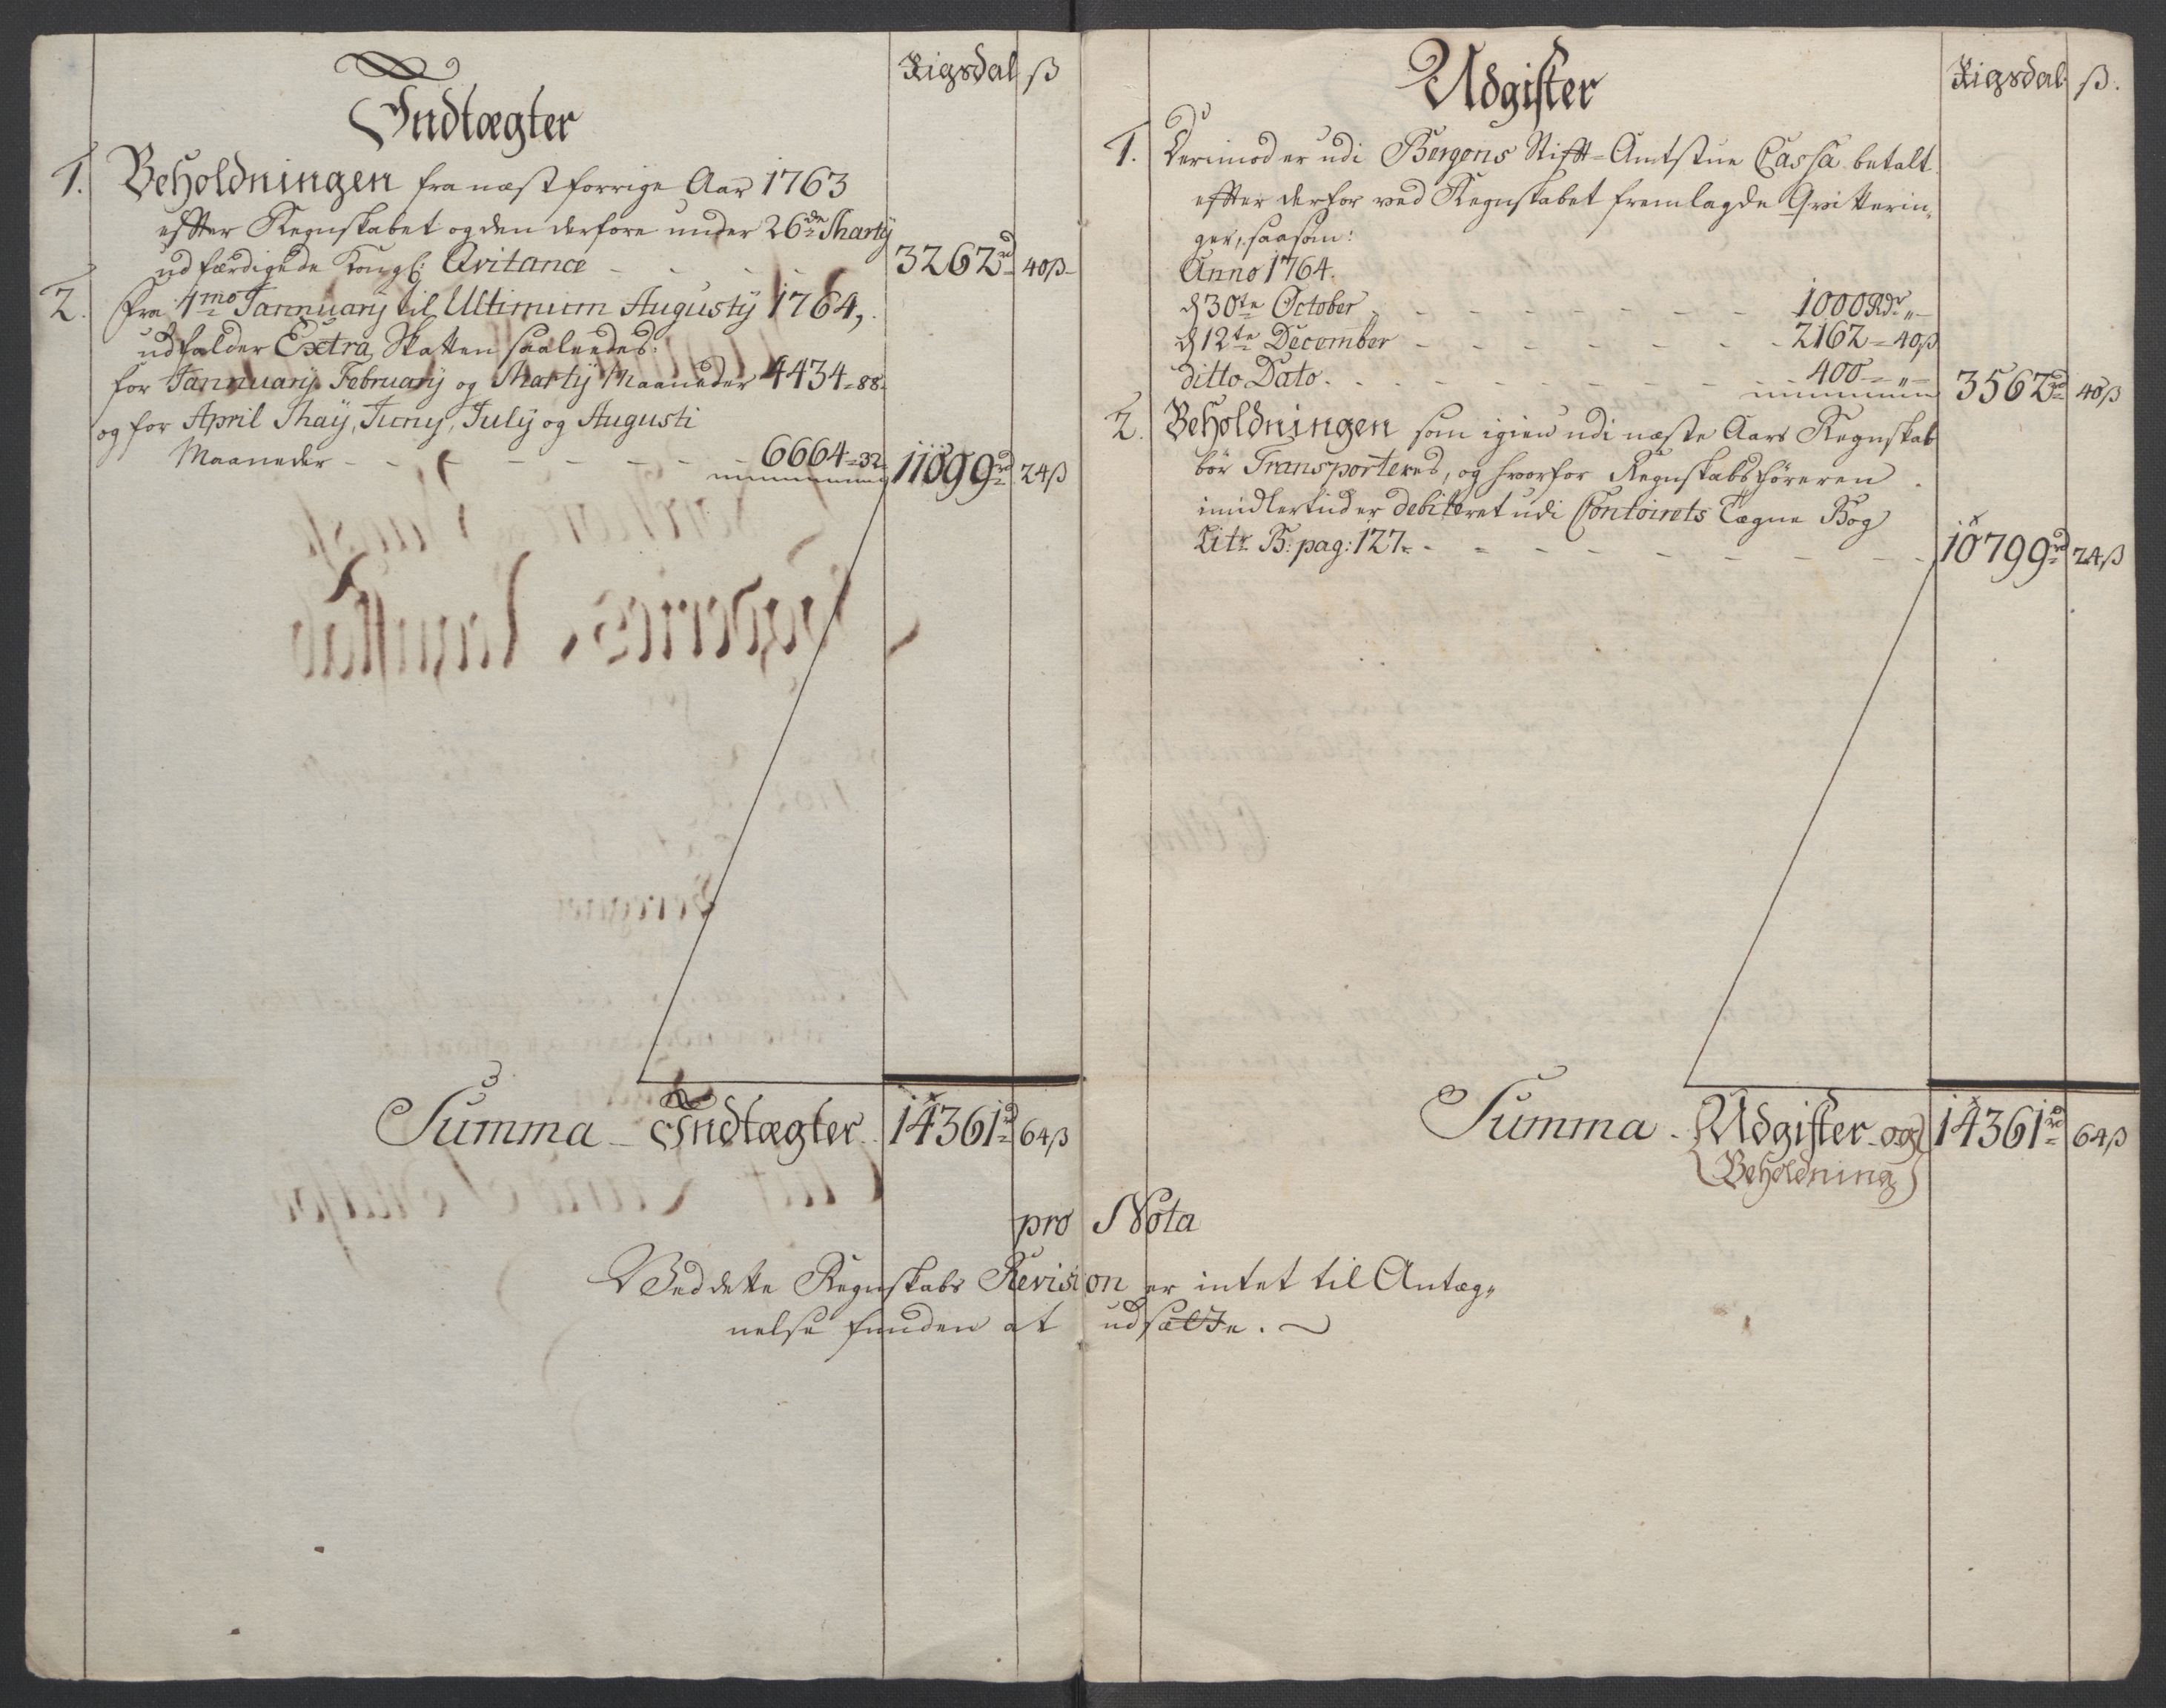 Rigsdal ß
Indtægter
1. Beholdningen fra næst forrige Aar 1763
effter Regnskabet og den derfore under 26de Marty
udfærdigede Kongl: Qvitance - - - - 3262rd 40ß
2. Fra 1mo Jannuarij til Ultimum Augustij 1764,
udfalder Extra Skatten saaledes:
for Jannuarij, Februarij og Martij Maaneder 4434 = 88.
og for April, Maij, Junij, Julij og Augusti
Maaneder - - - - - - - 6664 = 32 11099rd 24ß
Summa Indtægter 14361rd 64ß
Rigsdal ß.
Udgifter
1. Derimod er udi Bergens Stifft-Amtstue Cassa betalt
effter derfor ved Regnskabet fremlagde Qvitterin-
ger, saasom:
Anno 1764.
d 30te October - - - - - - 1000 Rdr „
d 12te December - - - - - - 2162 = 40ß
ditto Dato - - - - - - 400 = „ 3562rd 40ß
2. Beholdningen som igien udi næste Aars Regnskab
bör Transporteres, og hvorfor Regnskabsföreren
imidlertid er debiteret udi Contoirets Tegne Bog
Litr B: pag: 127. - - - - - - 10799rd 24ß
Summa Udgifter og 14361rd 64ß
Beholdning
pro Nota
Ved dette Regnskabs Revision er intet til Antæg-
nelse funden at udsætte.